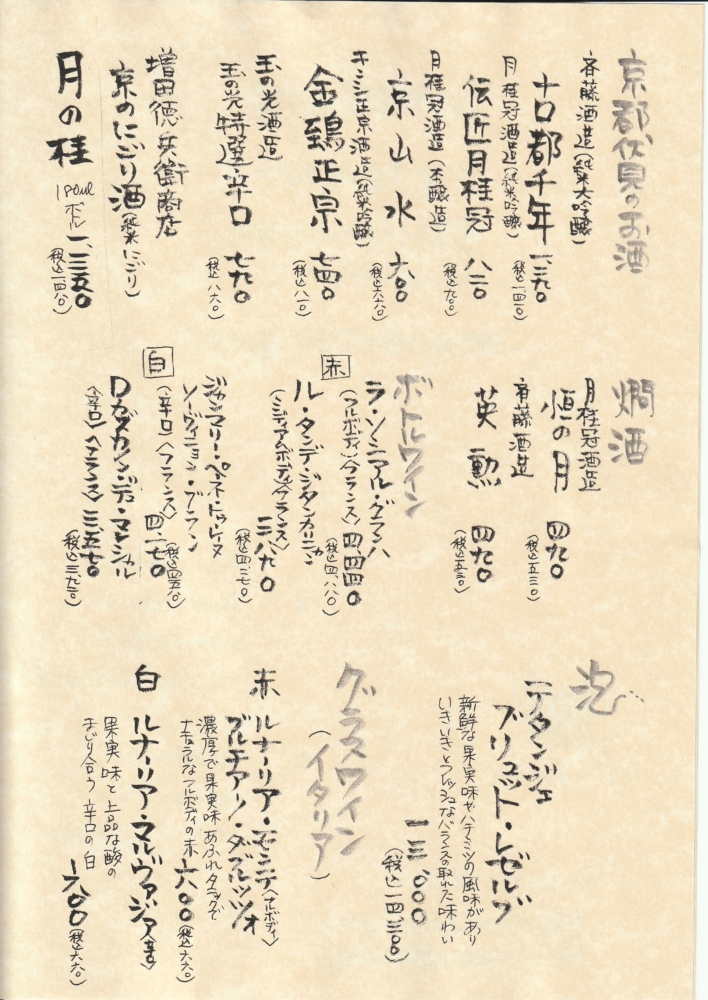 京都伏見のお酒
斉藤酒造(純米大吟醸)
古都千年 一.二九〇
(税込一.四二〇)
月桂冠酒造(純米吟醸)
伝匠月桂冠 八二〇
(税込九〇〇)
月桂冠酒造(本醸造)
京山水 六〇〇
(税込六六〇)
キンシ正宗酒造(純米吟醸)
金鵄正宗 七四〇
(税込八一〇)
玉の光酒造
玉の光特選辛口 七九〇
(税込八六〇)
増田徳兵衛商店
京のにごり酒(純米にごり)
月の桂
ボトル 一.三五〇
燗酒
月桂冠酒造
恒の月 四九〇
(税込五三〇)
斉藤酒造
英勲 四九〇
(税込五三〇)
ボトルワイン
赤
(フルボディ)〈フランス〉 四.四四〇
(税込四.八八〇)
(ミディアムボディ)〈フランス〉 三.八八〇
(税込四.二七〇)
白
ソーヴィニョン・ブラン
(辛口)〈フランス〉 四.一七〇
(税込四.五八〇)
(辛口)〈フランス〉 三.五七〇
(税込三.九二〇)
泡
テタンジェ
ブリュット・レゼルブ
新鮮な果実味やハチミツの風味があり
いきいきとフレッシュなバランスの取れた味わい
一三.〇〇〇
(税込一四.三〇〇)
グラスワイン
(イタリア)
赤 ルナーリア・モンテ(フルボディ)
プルチアーノ・ダブルッツォ
濃厚で果実味あふれタニックで
ナチュラルなフルボディの赤 六〇〇(税込六六〇)
白 ルナーリア・マルヴァジア(辛口)
果実味と上品な酸の
まじり合う辛口の白 六〇〇(税込六六〇)